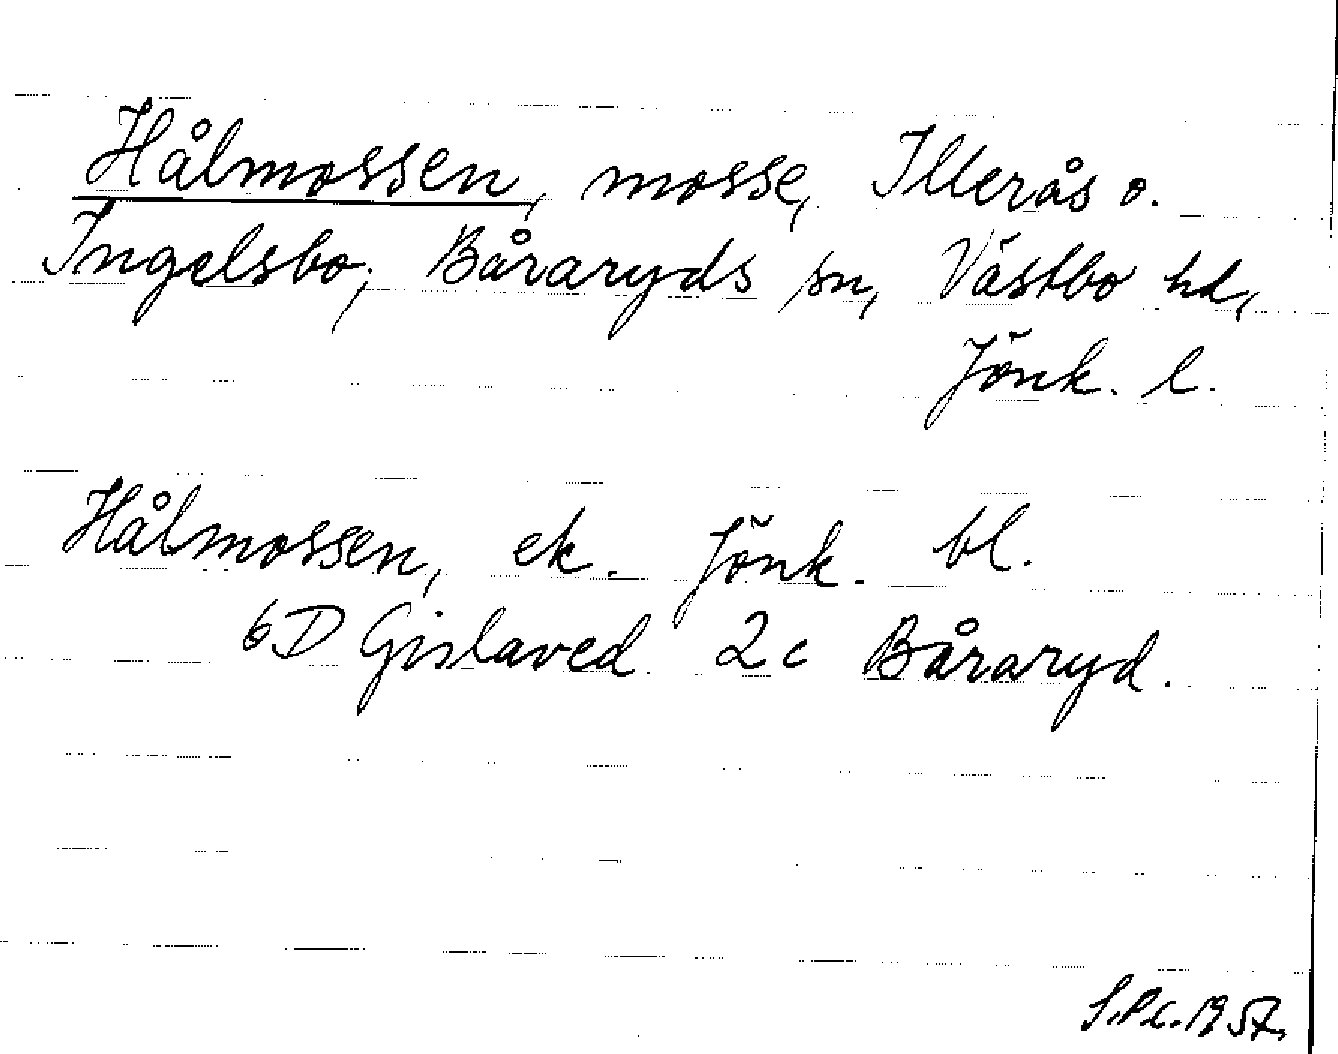 Hålmossen, mosse, Illerås o.
Ingelsbo, Båraryds sn, Västbo hd,
Jönk. l.
Hålmossen, ek. Jönk. bl.
6D Gislaved 2c Båraryd.
S.P.C. 1957.